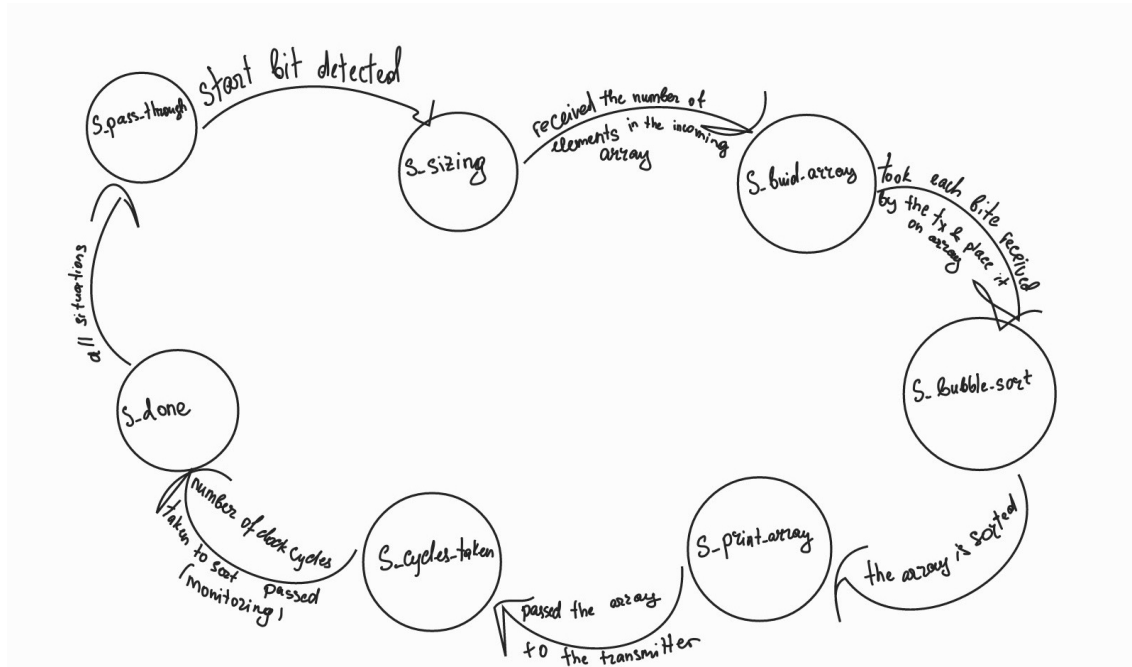 S_pass_through
start bit detected
S_sizing
received the number of
elements in the incoming
array
S_buid_array
took each bite received
by the tx & place it
on array
S_bubble_sort
the array is sorted
S_print_array
passed the array
to the transmitter
S_cycles_taken
number of clock cycles
taken to sort passed
(monitoring)
S_done
all situations